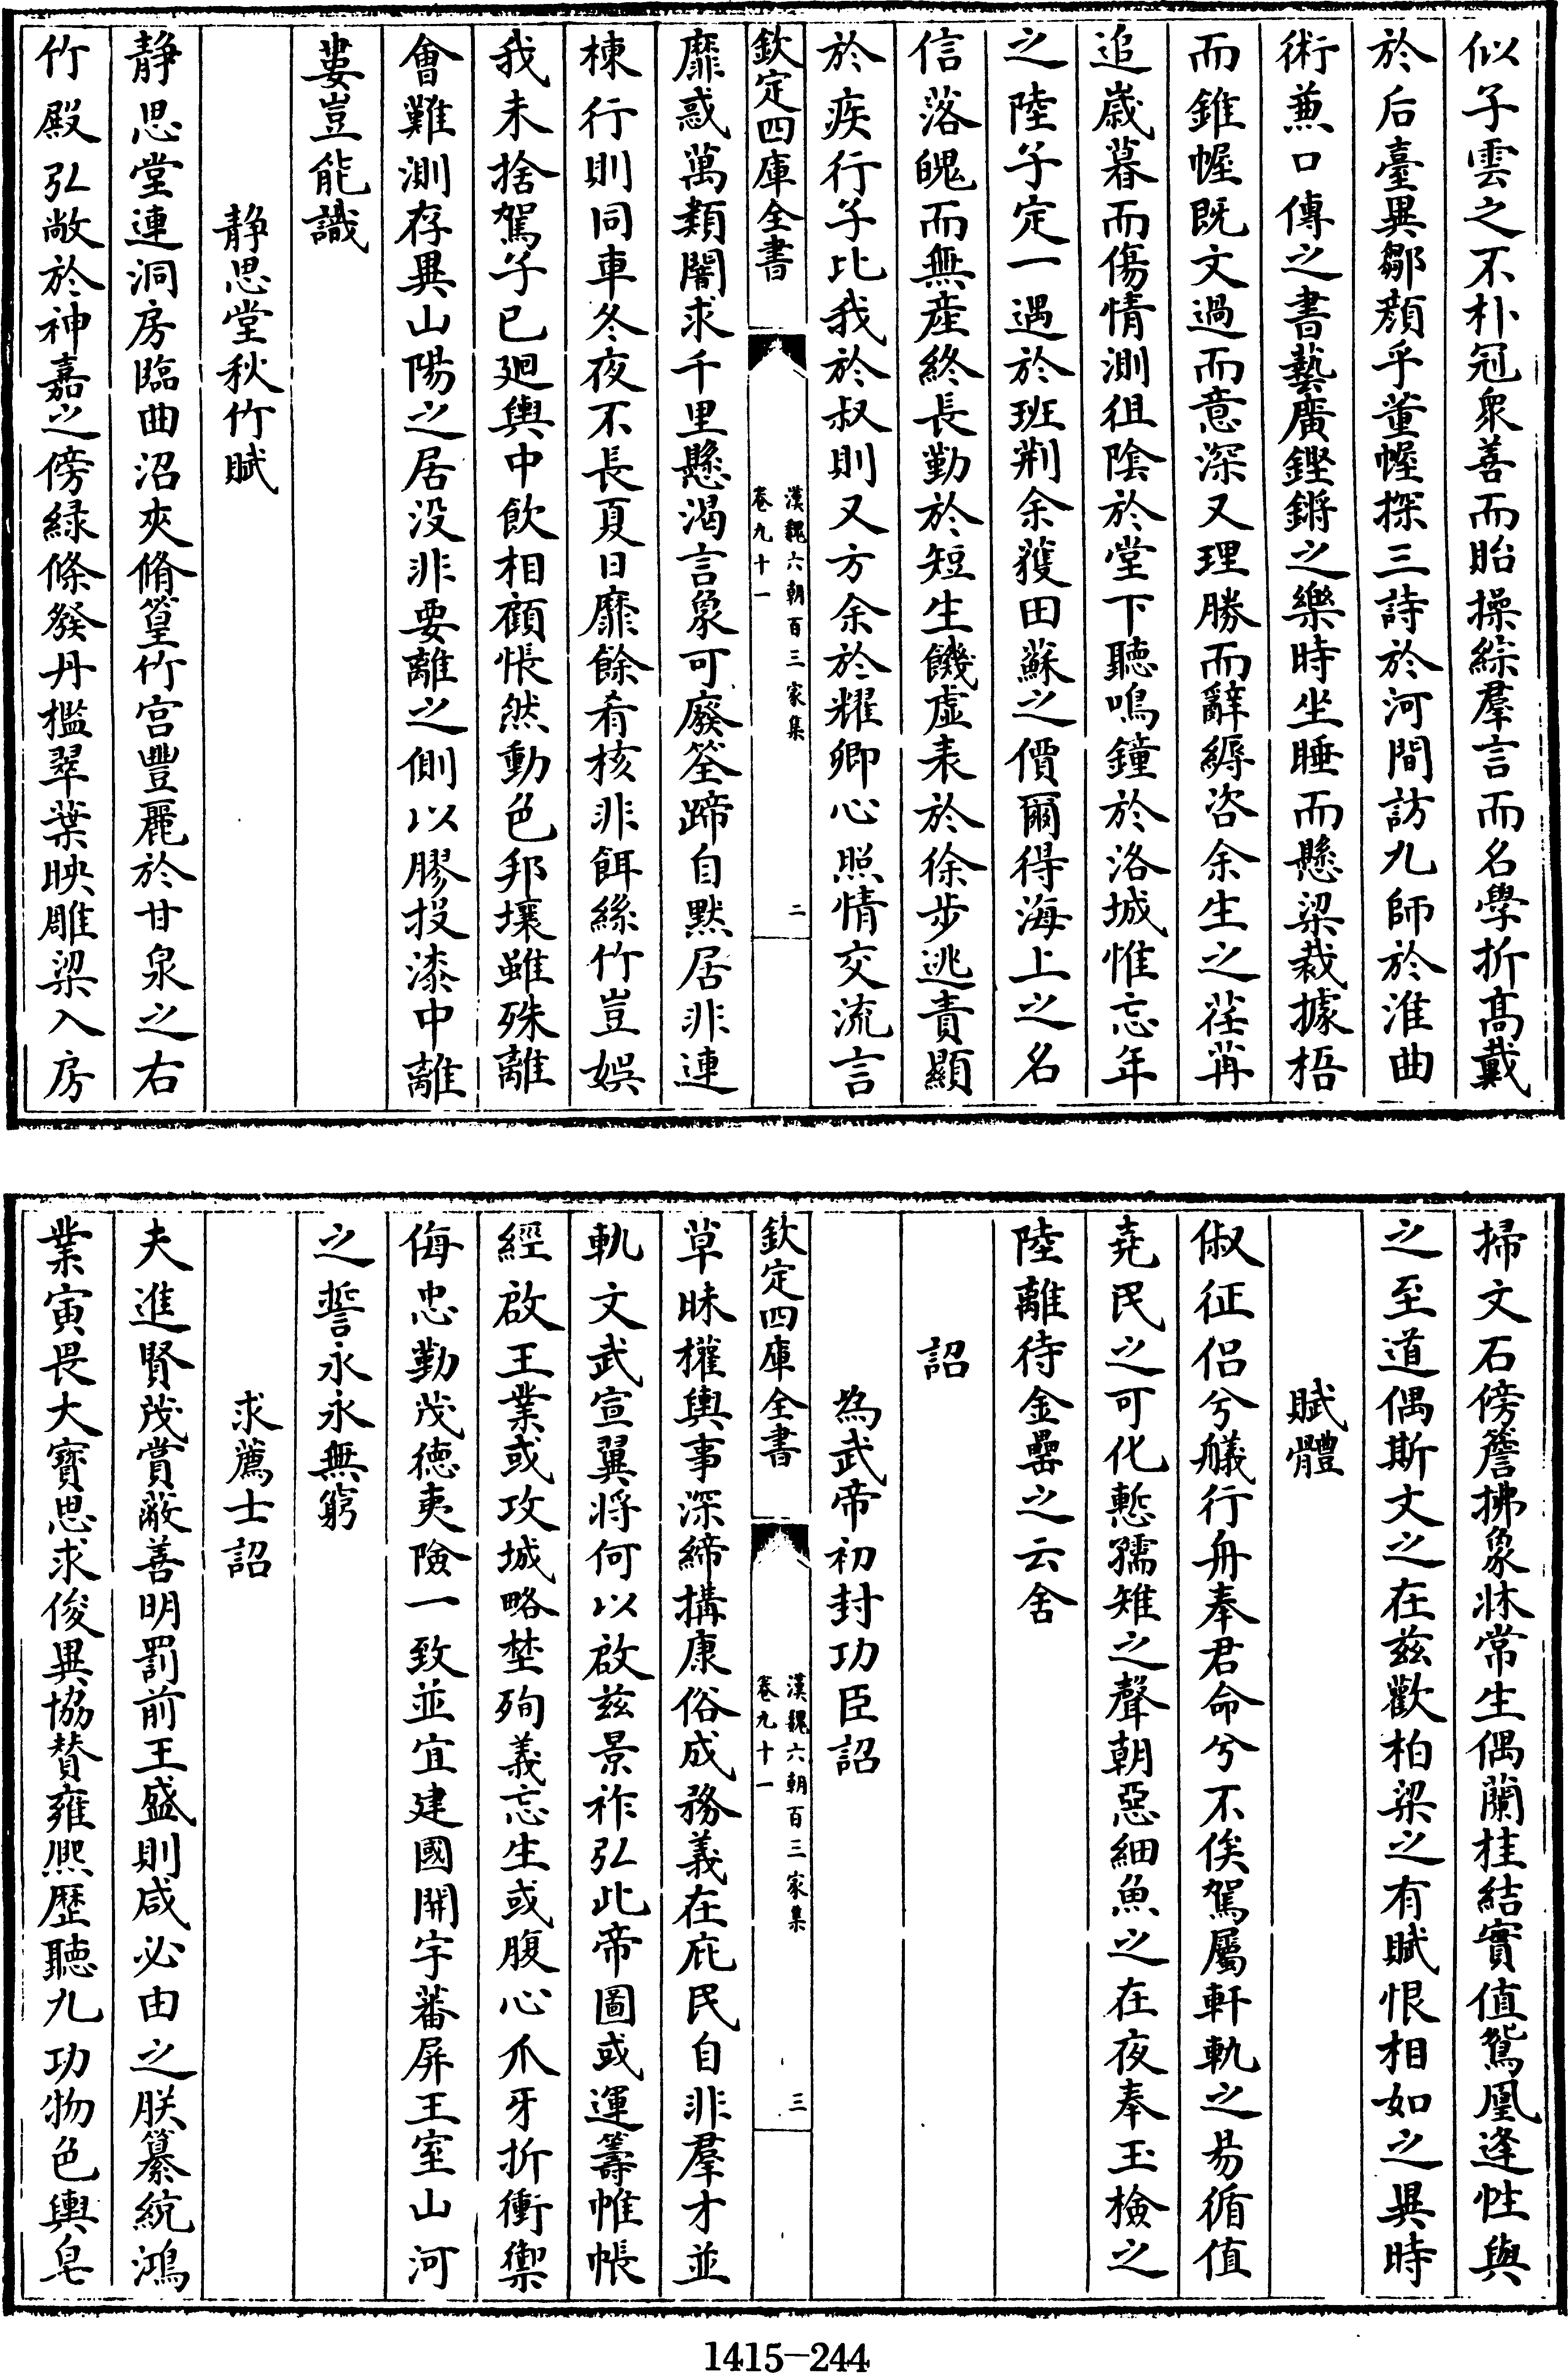 似子雲之不朴冠衆善而貽操綜羣言而名學折髙戴
於后臺異鄒顔乎董幄探三詩於河間訪九師於淮曲
術兼口傳之書藝廣鏗鏘之樂時坐睡而懸梁裁據梧
而錐幄既文過而意深又理勝而辭縟咨余生之荏苒
追嵗暮而傷情測徂陰於堂下聽鳴鐘於洛城惟忘年
之陸子定一遇於班荆余獲田蘇之價爾得海上之名
信落魄而無産終長勤於短生饑虛表於徐步逃責顯
於疾行子比我於叔則又方余於耀卿心照情交流言
欽定四庫全書
漢魏六朝百三家集
卷九十一
二
靡惑萬類闇求千里懸渴言象可廢筌蹄自黙居非連
棟行則同車冬夜不長夏日靡餘肴核非餌絲竹豈娛
我未捨駕子已廻輿中飲相顧悵然動色邦壤雖殊離
會難測存異山陽之居没非要離之側以膠投漆中離
婁豈能識
靜思堂秋竹賦
静思堂連洞房臨曲沼夾脩篁竹宫豐麗於甘泉之右
竹殿弘敞於神嘉之傍緑條發丹檻翠葉映雕梁入房
掃文石傍簷拂象牀常生偶蘭桂結實值鴛凰逢性與
之至道偶斯文之在兹歡柏梁之有賦恨相如之異時
賦體
俶征侣兮艤行舟奉君命兮不俟駕屬軒軌之易循值
堯民之可化慙孺雉之聲朝惡細魚之在夜奉玉檢之
陸離待金罍之云舍
詔
為武帝初封功臣詔
欽定四庫全書
漢魏六朝百三家集
卷九十一
三
草昧權輿事深締搆康俗成務義在庇民自非羣才並
軌文武宣翼将何以啟兹景祚弘此帝圖或運籌帷帳
經啟王業或攻城略埜殉義忘生或腹心爪牙折衝禦
侮忠勤茂徳夷險一致並宜建國開宇蕃屏王室山河
之誓永永無窮
求薦士詔
夫進賢茂賞蔽善明罰前王盛則咸必由之朕纂統鴻
業寅畏大寳思求俊異協賛雍熈歴聽九功物色輿皂
1415-244